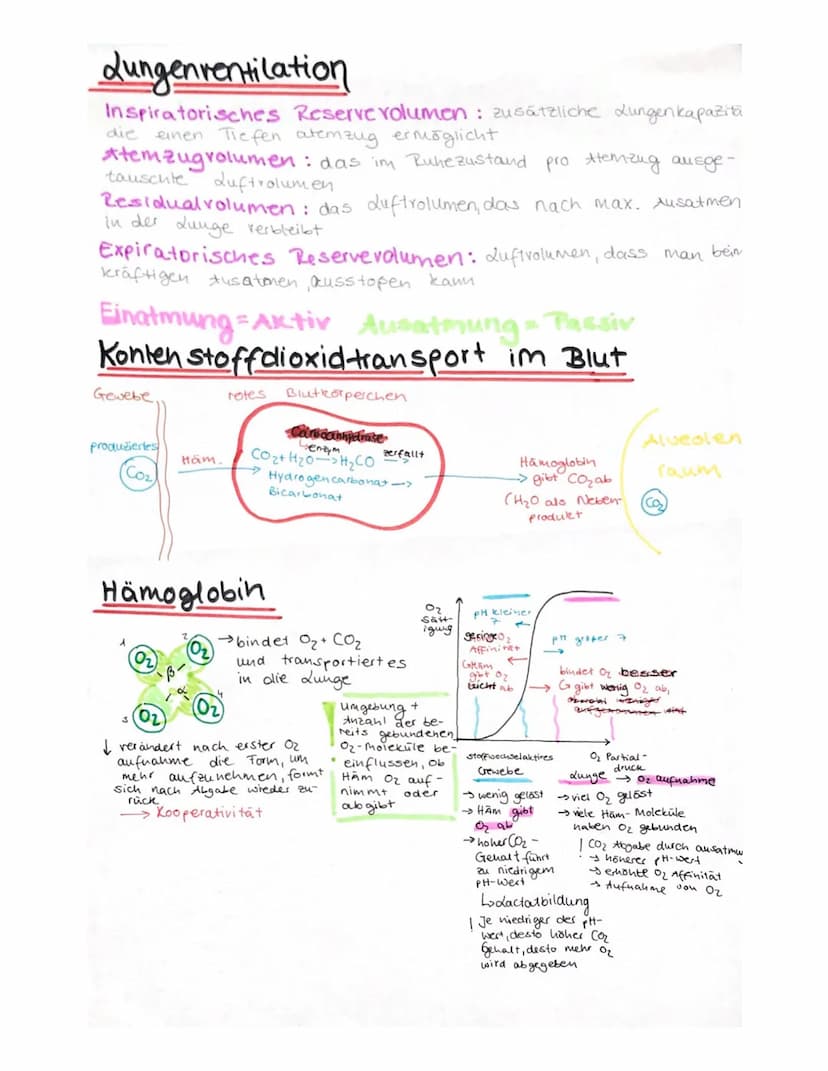 Lungenventilation
Inspiratorisches Reservevolumen : zusätzliche Lungenkapazitä
die einen Tiefen atemzug ermöglicht
Atemzugvolumen : das im Ruhezustand pro Atemzug ausge-
tauschte Luftvolumen
Residualvolumen : das Luftvolumen, das nach max. Ausatmen
in der Lunge verbleibt
Expiratorisches Reservevolumen : Luftvolumen, dass man beim
kräftigen Ausatmen, ausstopen kann
Einatmung = Aktiv Ausatmung = Passiv
Kohlenstoffdioxidtransport im Blut
Gewebe
rotes Blutkörperchen
produziertes
CO2
Häm.
Carboanhydrase
Enzym
CO2 + H2O → H2CO zerfällt
Hydrogencarbonat →
Bicarbonat
Hämoglobin
gibt CO2 ab
(H2O als Neben-
produkt
Alveolen
raum
CO2
Hämoglobin
1 2 3 4
O2 O2 O2 O2
β
α
→ bindet O2 + CO2
und transportiert es
in die Lunge
↓ verändert nach erster O2
aufnahme die Form, um
mehr aufzunehmen, formt
sich nach Abgabe wieder zu-
rück
→ Kooperativität
Umgebung +
Anzahl der be-
reits gebundenen
O2-Moleküle be-
einflussen, ob
Häm O2 auf-
nimmt oder
abgibt
O2
Sätt-
igung
pH kleiner
7 ←
geringe O2
Affinität
Häm
gibt O2
leicht ab
pH größer 7
→
bindet O2 besser
gibt wenig O2 ab,
O2 Partial-
druck
Stoffwechselaktives
Gewebe
→ wenig gelöst
→ Häm gibt
O2 ab
→ hoher CO2-
Gehalt führt
zu niedrigem
pH-Wert
↳ Lactatbildung
! Je niedriger der pH-
Wert, desto höher CO2
Gehalt, desto mehr O2
wird abgegeben
Lunge → O2 aufnahme
→ viel O2 gelöst
→ viele Häm-Moleküle
haben O2 gebunden
! CO2 Abgabe durch ausatmu
→ höherer pH-Wert
→ erhöhte O2 Affinität
→ Aufnahme von O2